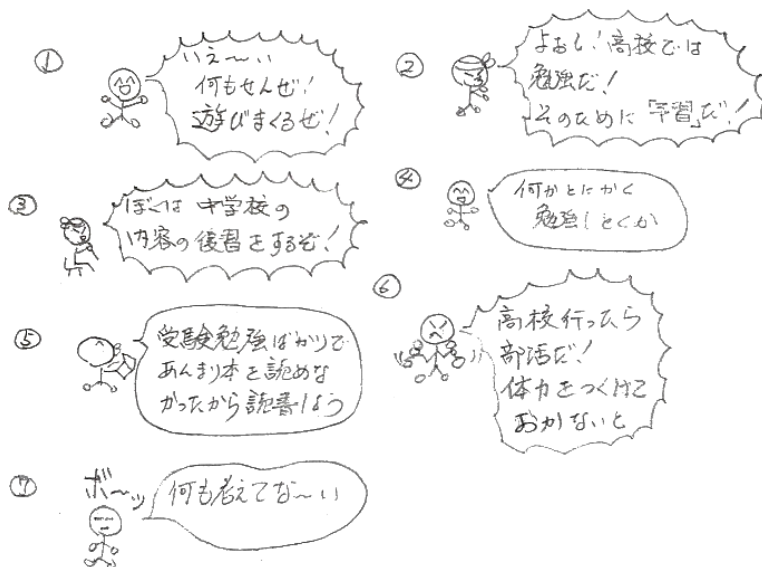 ①
いえ～い
何もせんぜ!
遊びまくるぜ!
②
よおし!高校では
勉強だ!
そのために「予習」だ!
③
ぼくは中学校の
内容の復習をするぞ!
④
何かとにかく
勉強しとくか
⑤
受験勉強ばかりで
あんまり本を読めな
かったから読書しよう
⑥
高校行ったら
部活だ!
体力をつけて
おかないと
⑦
ボ～ッ
何も考えてな～い